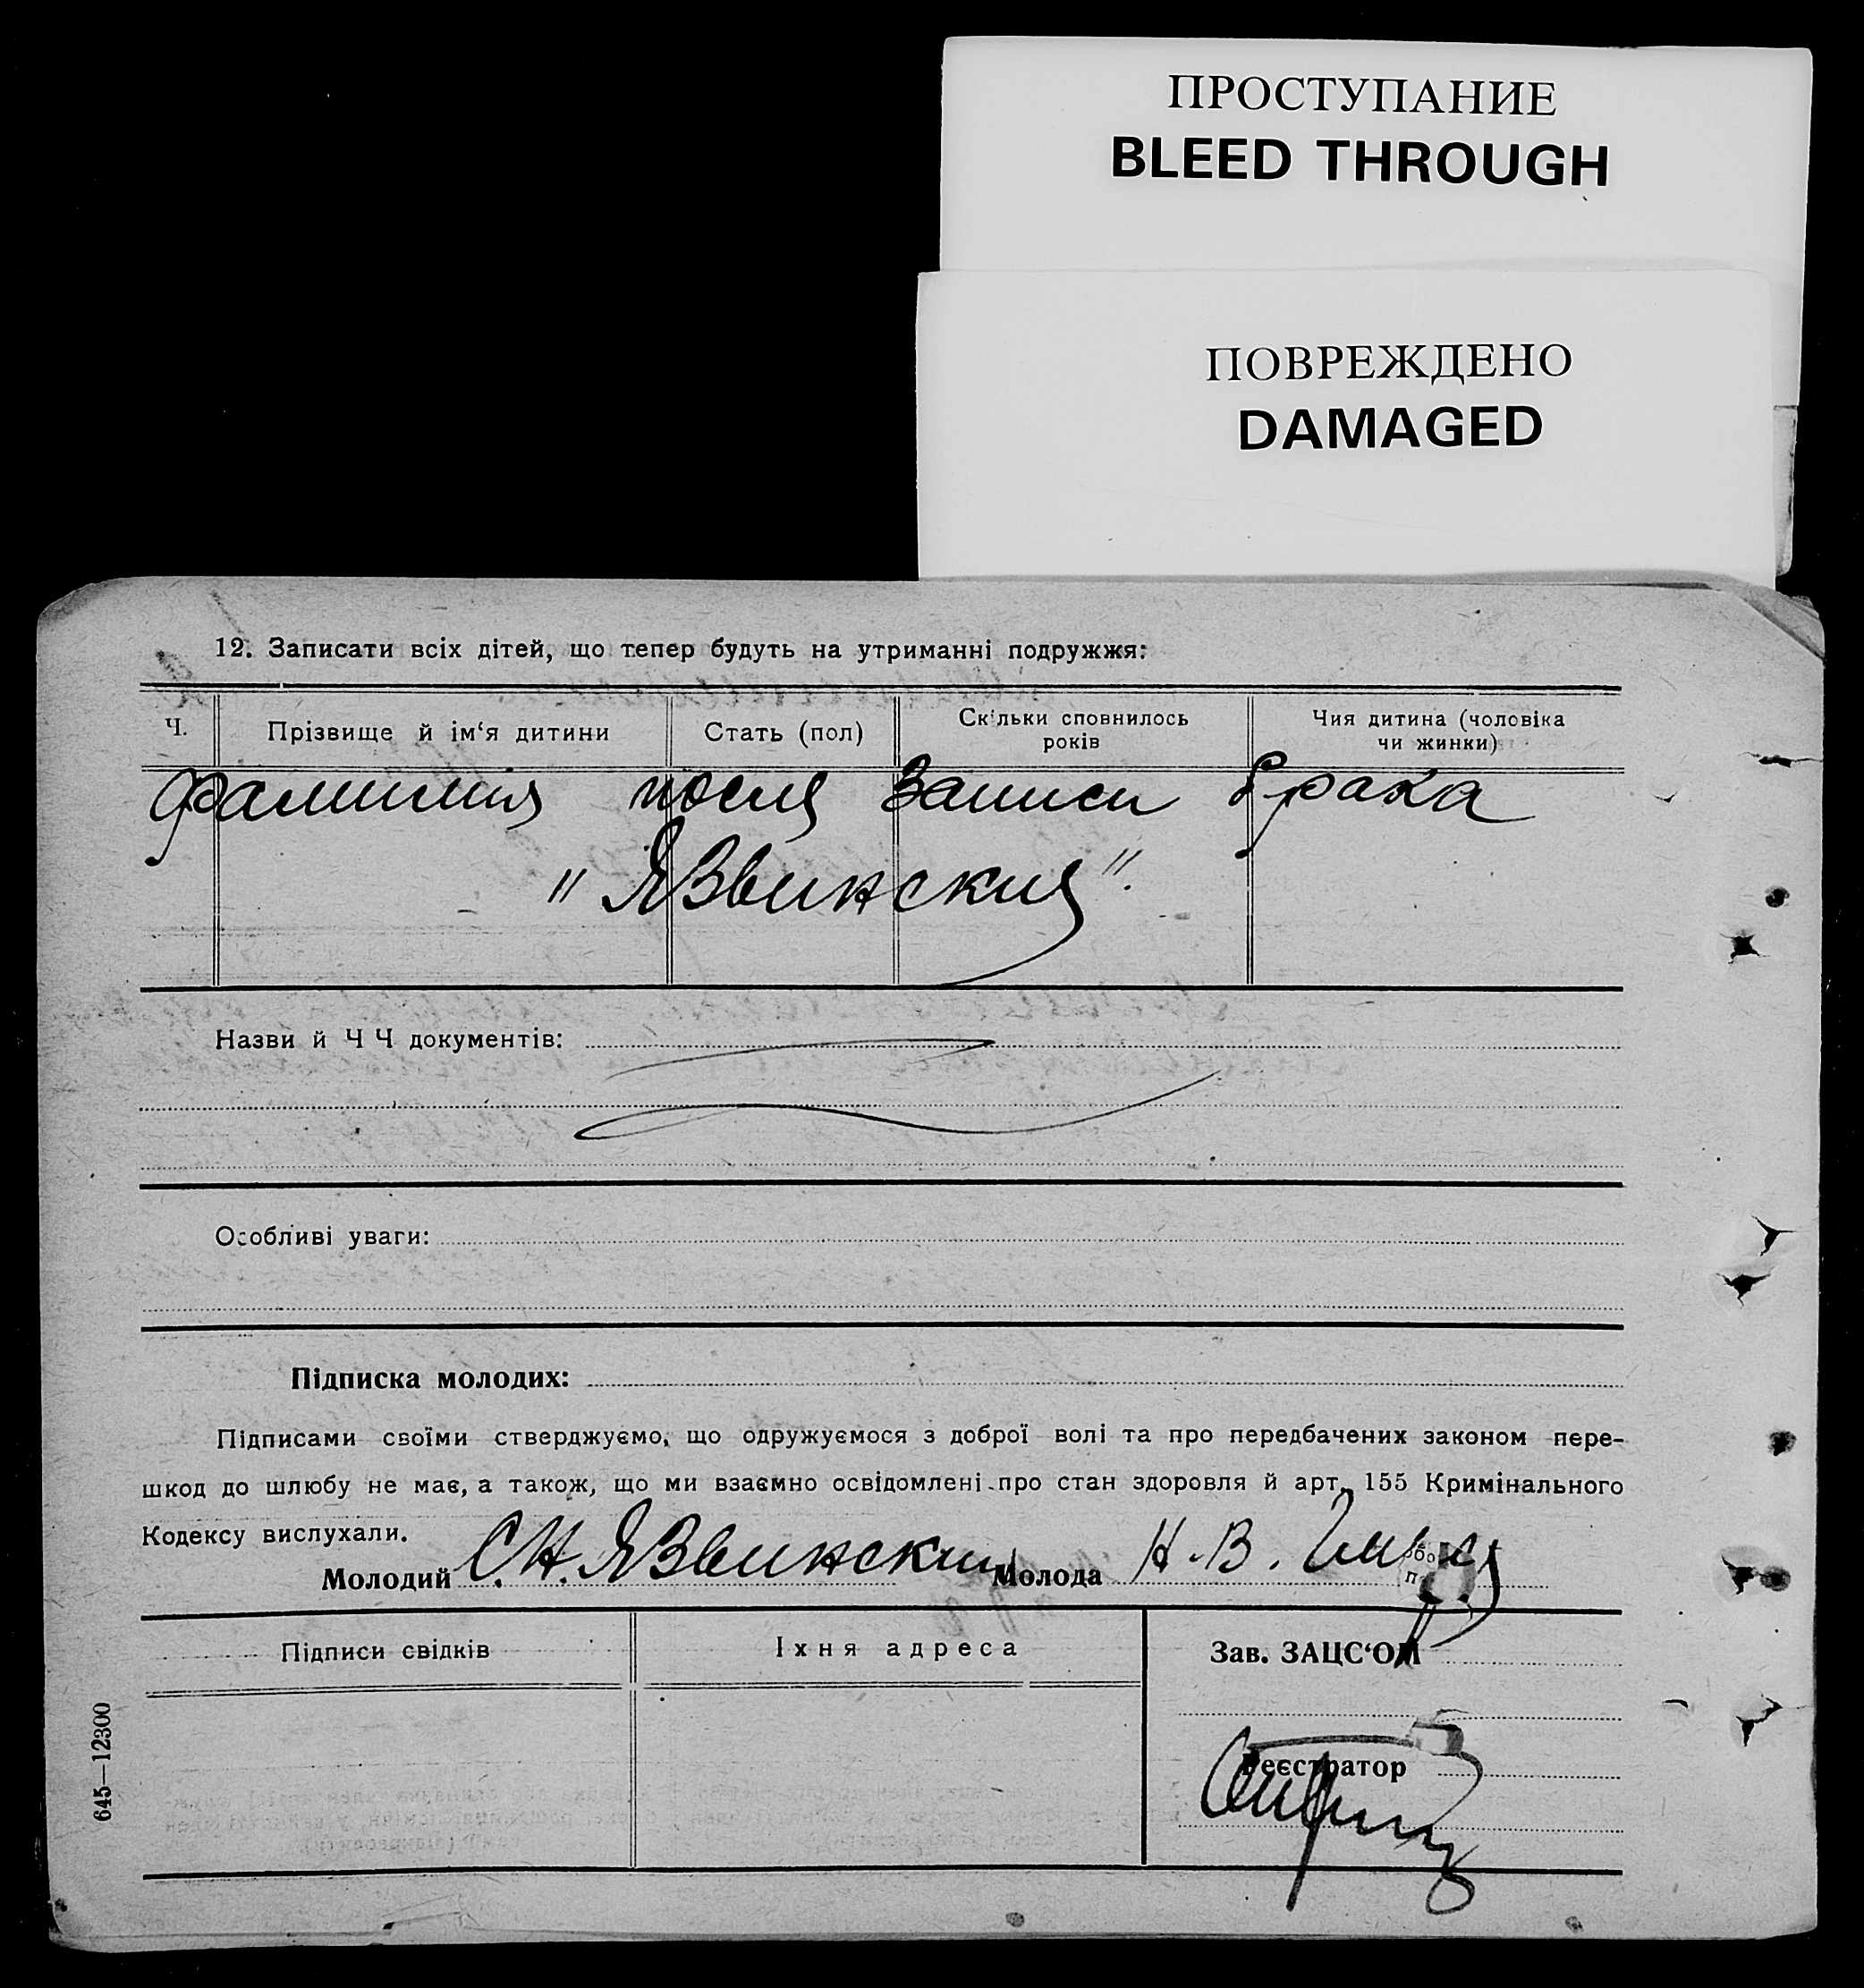 ПРОСТУПАНИЕ
BLEED THROUGH
ПОВРЕЖДЕНО
DAMAGED
12. Записати всіх дітей, що тепер будуть на утриманні подружжя:
Ч. Прізвище й ім‘я дитини Стать (пол) Скільки сповнилось років Чия дитина (чоловіка чи жинки)
Фамилия после записи брака
„Язвинский".
Назви й Ч Ч документів:
Особливі уваги:
Підписка молодих:
Підписами своїми стверджуємо, що одружуємося з доброї волі та про передбачених законом пере-
шкод до шлюбу не має, а також, що ми взаємно освідомлені про стан здоровля й арт. 155 Кримінального
Кодексу вислухали.
Молодий С.Н. Язвинский Молода Н. В.
Підписи свідків Іхня адреса Зав. ЗАЦС‘ОМ
Реєстратор
645—12300